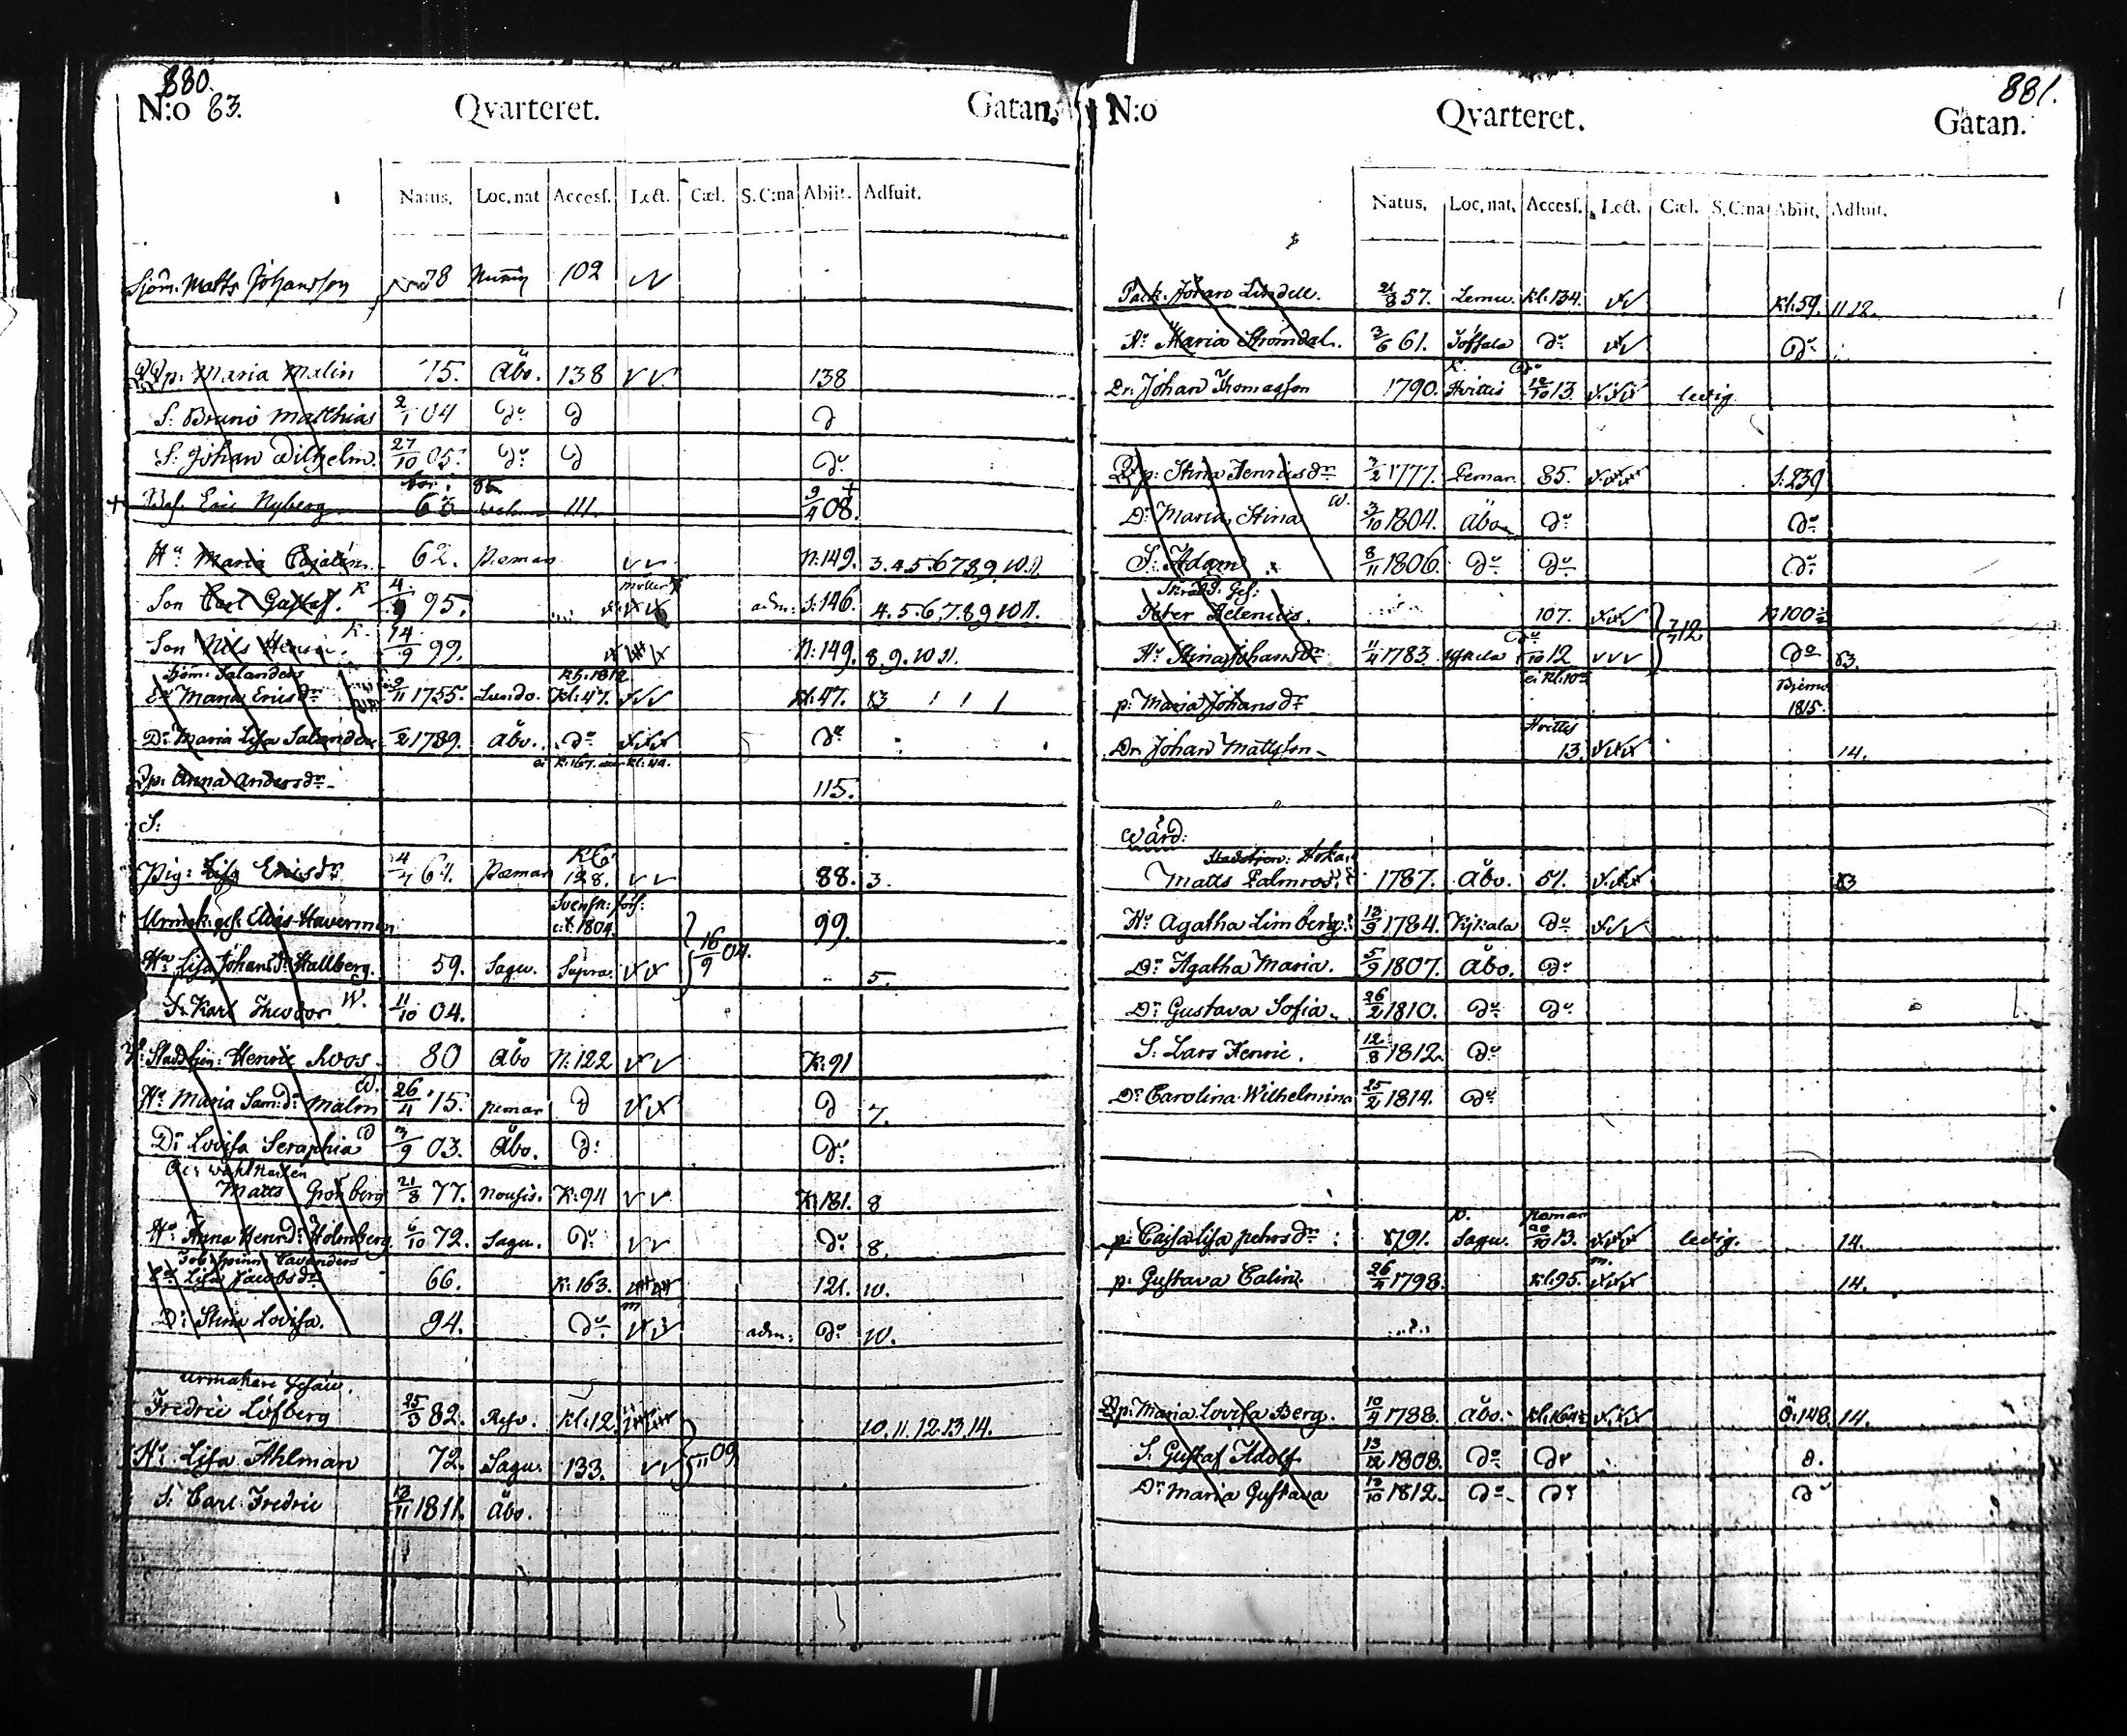 880.
N:o 83. Qvarteret. Gatan.
Natus. Loc. nat Accesf. Lect. Cæl. S. C:na Abiit. Adfuit.
Sjöm. Matts Johansson 78 102
p: Maria Malin 75. Åbo. 138 v v 138
S: Bruno Matthias 2/1 04 do d d
S: Johan Vilhelm. 27/10 05. do d do
Eric Nyberg 63 111. 9/4 08. †
Hu Maria Cajalin. 62. Pemar v v N:149. 3.4.5.6 7 8 9 10.11.
Son Carl Gustaf. K 95. adm: S:146. 4.5.6.7.8.9 10 11.
Son Nils Henric. K. 14/9 99. N:149. 8.9.10 11.
Sjöm: Salanders
Maria Ericsdr 9/11 1755. Lundo. Kl:47. Kl:47. 13
Dr Maria Lisa Salander 1789. Åbo. do do
p: Anna Andersdr 115.
S:
Pig: Lisa Ericsdr 4/4 64. Pæmar K6 128. v v 88. 3.
Urmak: ges: Elias Haverman Svensk: förs: 1804. 99.
Hu Lisa Johansdr Hallberg. 59. Sagu. Supra. 16/9 04. 5.
S: Karl Theodor W. 11/10 04.
Stadstjen: Henric Roos. 80 Åbo N:122 K:91
Hu Maria Sam:dr Malm W. 26/11 75. pemar d d 7.
Dr Lovisa Seraphia 3/9 03. Åbo. d: do
Matts Grönberg 21/8 77. Nousis. K:94 v v K:181. 8
Hu Anna Henr:dr Holmberg 6/10 72. Sagu. do v v do 8.
Tob: spinn: Cavanders
Lisa Jacobsdr 66. K:163. 121. 10.
Dr Stina Lovisa. 94. do adm: do 10.
Urmakare Gesäll.
Fredric Löfberg 25/3 82. Reso. Kl:12. 10. 11. 12. 13. 14.
Hu Lisa Ahlman 72. Sagu. 133. v v 09.
S: Carl Fredric 13/11 1811. Åbo.
881.
N:o Qvarteret. Gatan.
Natus, Loc. nat. Accesf. Lect. Cæl. S. C:na Abiit, Adfuit.
Lindell. 21/8 57. Lemu. Kl:134. Kl:59. 11 12.
Hu Maria Strömdal. 3/6 61. do do
Dr. Johan Thomasson 1790. Hvittis 12/10 13. ledig.
p: Stina Henricsdr 3/2 1777. Pemar. 85. S:239
Dr Maria Stina W. 3/10 1804. Åbo do do
S: Adam 8/11 1806. do do do
Skrädd. Ges:
Peter Helenius. 107. 12 N 100½
Hu Stina Johansdr 11/4 1783. 12 v v v do 13.
p: Maria Johansdr Bjerno 1815.
Dr. Johan Mattsson Hvittis 13. 14.
Wärd:
Matts Palmros 1787. Åbo. 51. 13
Hu Agatha Limberg: 13/9 1784. Kykala do
Dr Agatha Maria. 5/9 1807. Åbo. do
Dr Gustava Sofia. 26/2 1810. do do
S: Lars Henric. 12/8 1812. do
Dr Carolina Wilhelmina 25/2 1814. do
p: Cajsa Lisa pehrsdr: 1791. Sagu. pæmar 20/10 13. ledig. 14.
p: Gustava Calin. 26/4 1798. Kl:95. 14.
p: Maria Lovisa Berg. 10/4 1788. Åbo. Kl:164½ Ö:148. 14.
S: Gustaf Adolf 13/12 1808. do do d.
Dr Maria Gustava 12/10 1812. do do do